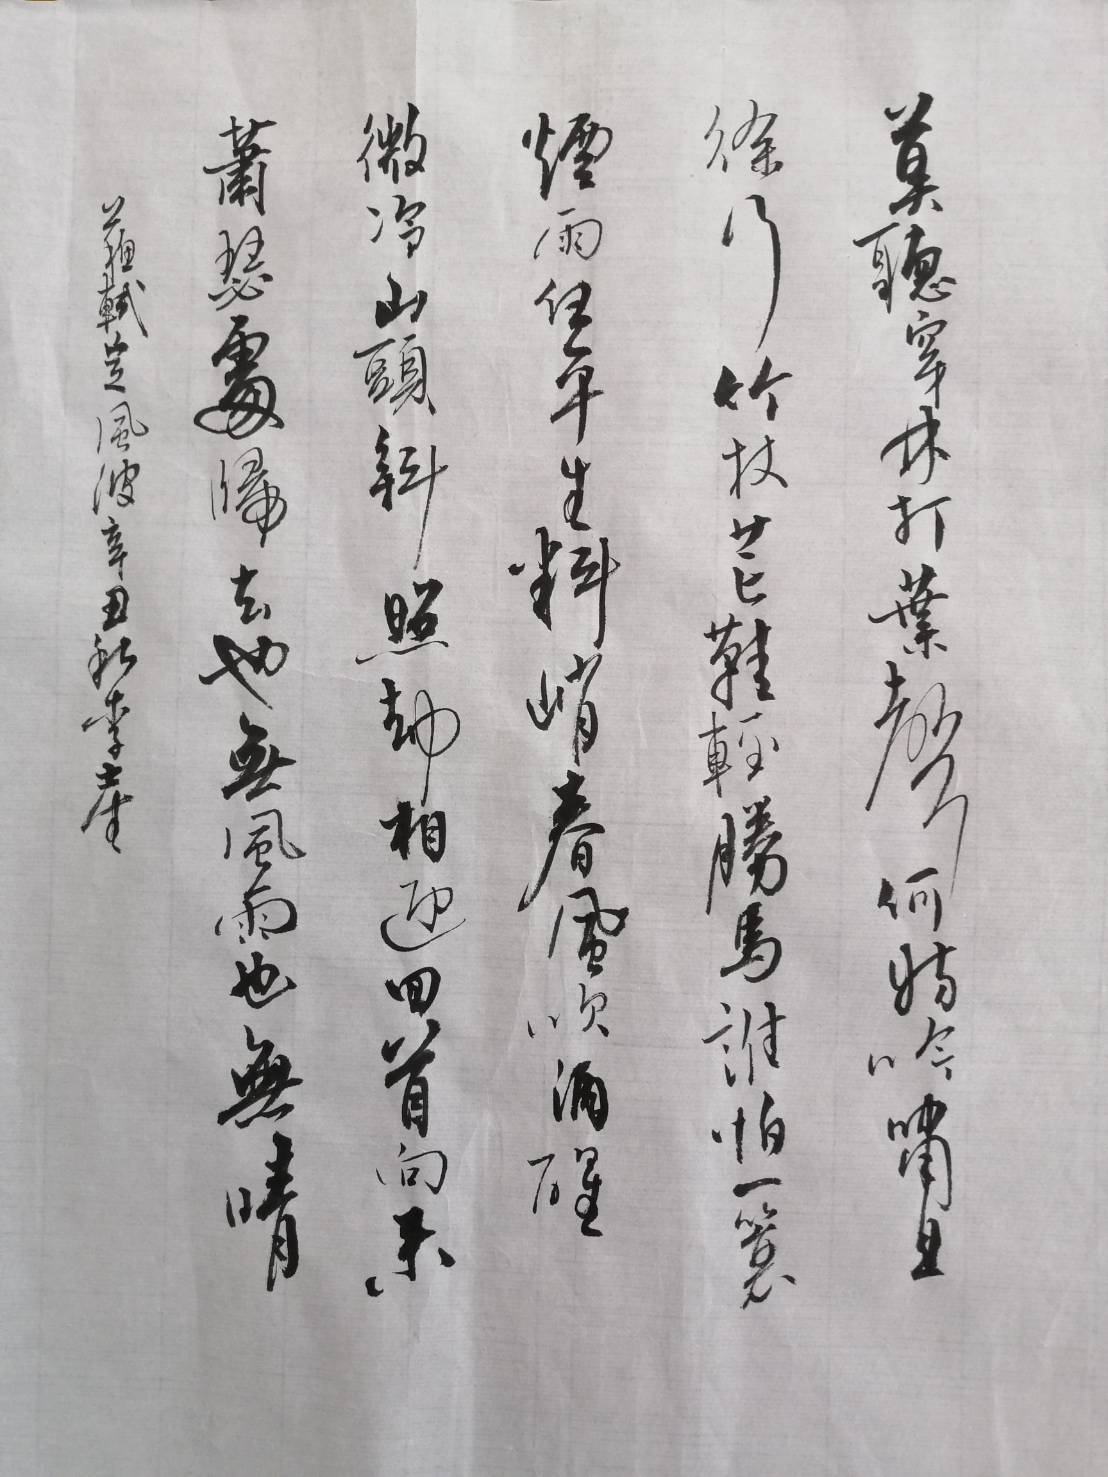 莫聽穿林打葉聲何妨吟嘯且
徐行竹杖芒鞋輕勝馬誰怕一蓑
煙雨任平生料峭春風吹酒醒
微冷山頭斜照却相迎回首向來
蕭瑟處歸去也無風雨也無晴
蘇軾定風波辛丑秋李